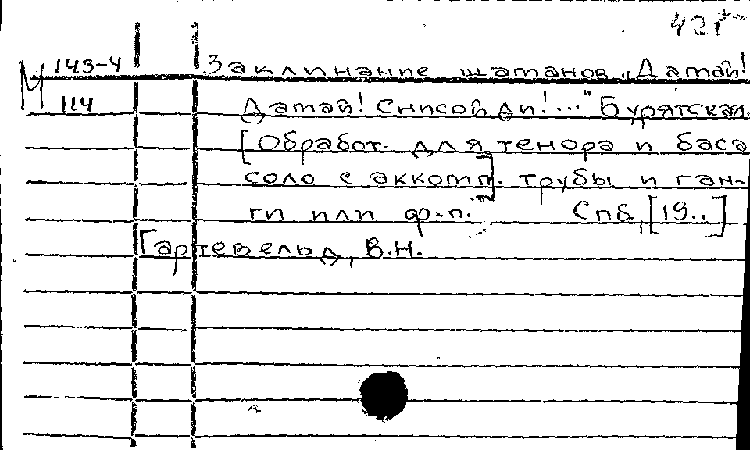 421
М 143-4 Заклинание шаманов „Дамай!
114 Дамай! Снисой ди!..." Бурятская.
[Обработ. для тенора и баса
соло с аккомп]. трубы и ган-
ги или ф.-п. Спб, [19..]
Гартевельд, В.Н.